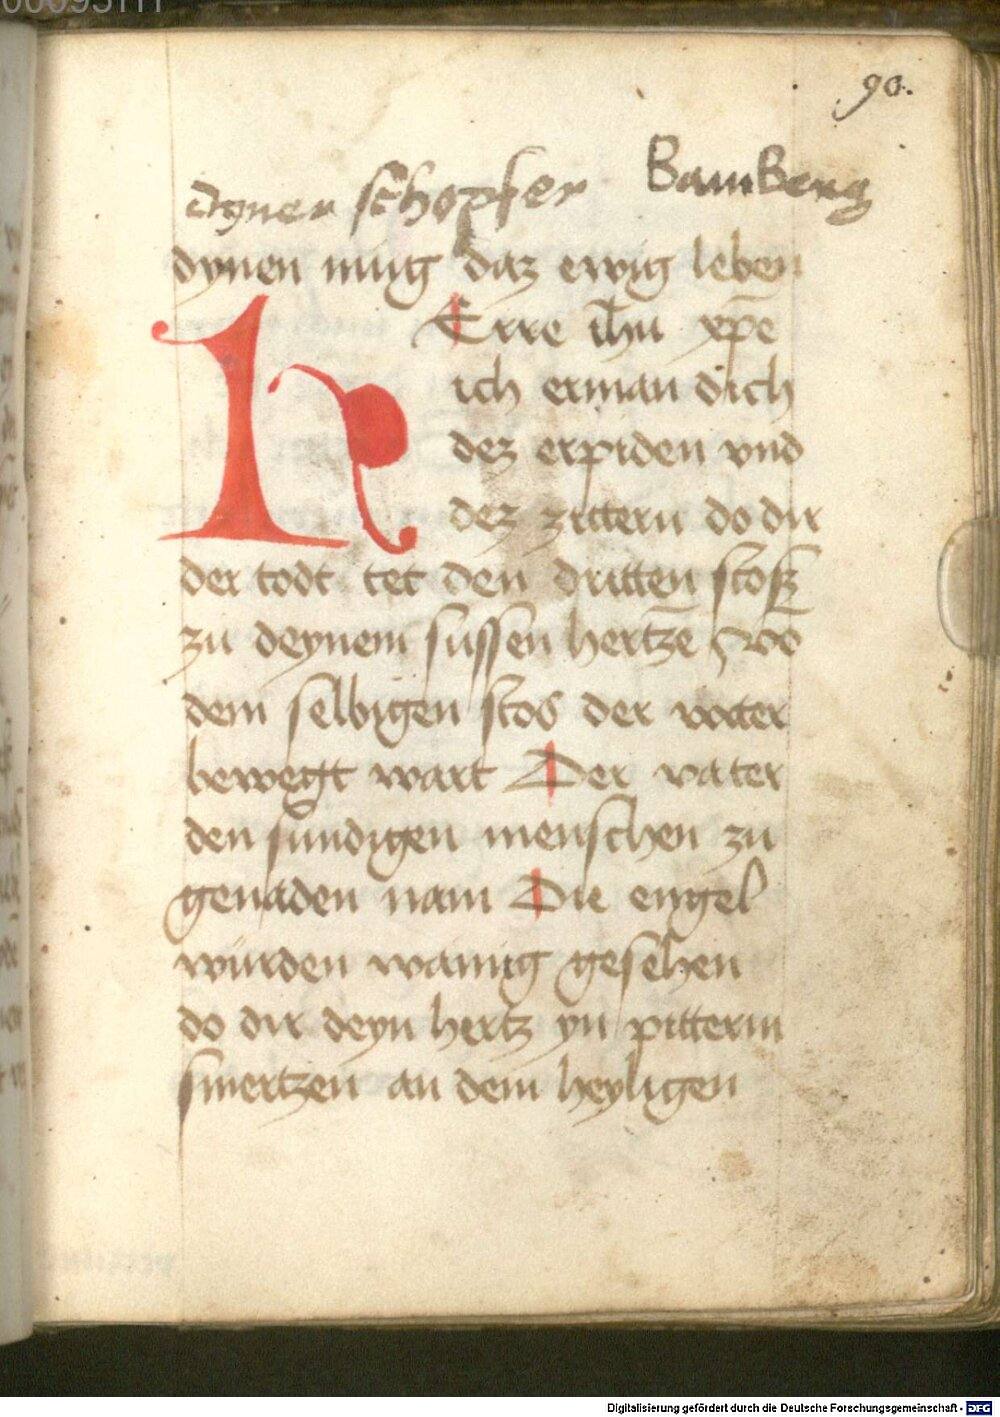 90.
Bamberg
dyner schopfer
dynen mug daz ewig leben
HErre ihu xpe
ich erman dich
dez erpiden vnd
dez zittern do dir
der todt tet den dritten stosz
zu deynem sussen hertze vō
dem selbigen stos der vater
bewegt wart Der vater
den sundigen menschen zu
genaden nam Die engel
wurden wainig gesehen
do dir deyn hertz yn pitterm
smertzen an dem heyligen
Digitalisierung gefördert durch die Deutsche Forschungsgemeinschaft - DFG